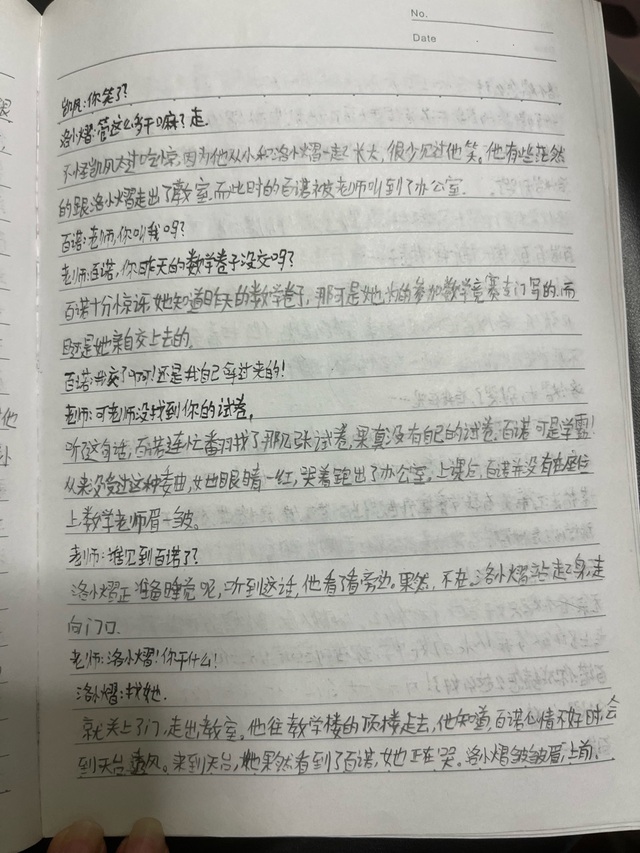 No.
Date
凯风:你笑了?
洛小熠:管这么多干嘛?走.
不怪凯风太过吃惊,因为他从小和洛小熠一起长大,很少见过他笑。他有些茫然
的跟洛小熠走出了教室.而此时的百诺被老师叫到了办公室.
百诺:老师,你叫我吗?
老师:百诺,你昨天的数学卷子没交吗?
百诺十分惊讶,她知道昨天的数学卷子,那可是她为的参加数学竞赛专门写的.而
且还是她亲自交上去的.
百诺:我交了啊!还是我自己拿过来的!
老师:可老师没找到你的试卷.
听这句话,百诺连忙番羽找了那几张试卷,果真没有自己的试卷.百诺可是学霸!
从来没受过这种委曲,她眼睛一红,哭着跑出了办公室.上课后,百诺并没有在座位
上.数学老师眉一皱。
老师:谁见到百诺了?
洛小熠正准备睡觉呢,听到这话,他看了看旁边.果然,不在.洛小熠站起了身,走
向门口.
老师:洛小熠!你干什么!
洛小熠:找她.
就关上了门,走出教室。他往教学楼的顶楼走去,他知道,百诺心情不好时,会
到天台透风。来到天台,他果然看到了百诺,她正在哭。洛小熠皱皱眉,上前.